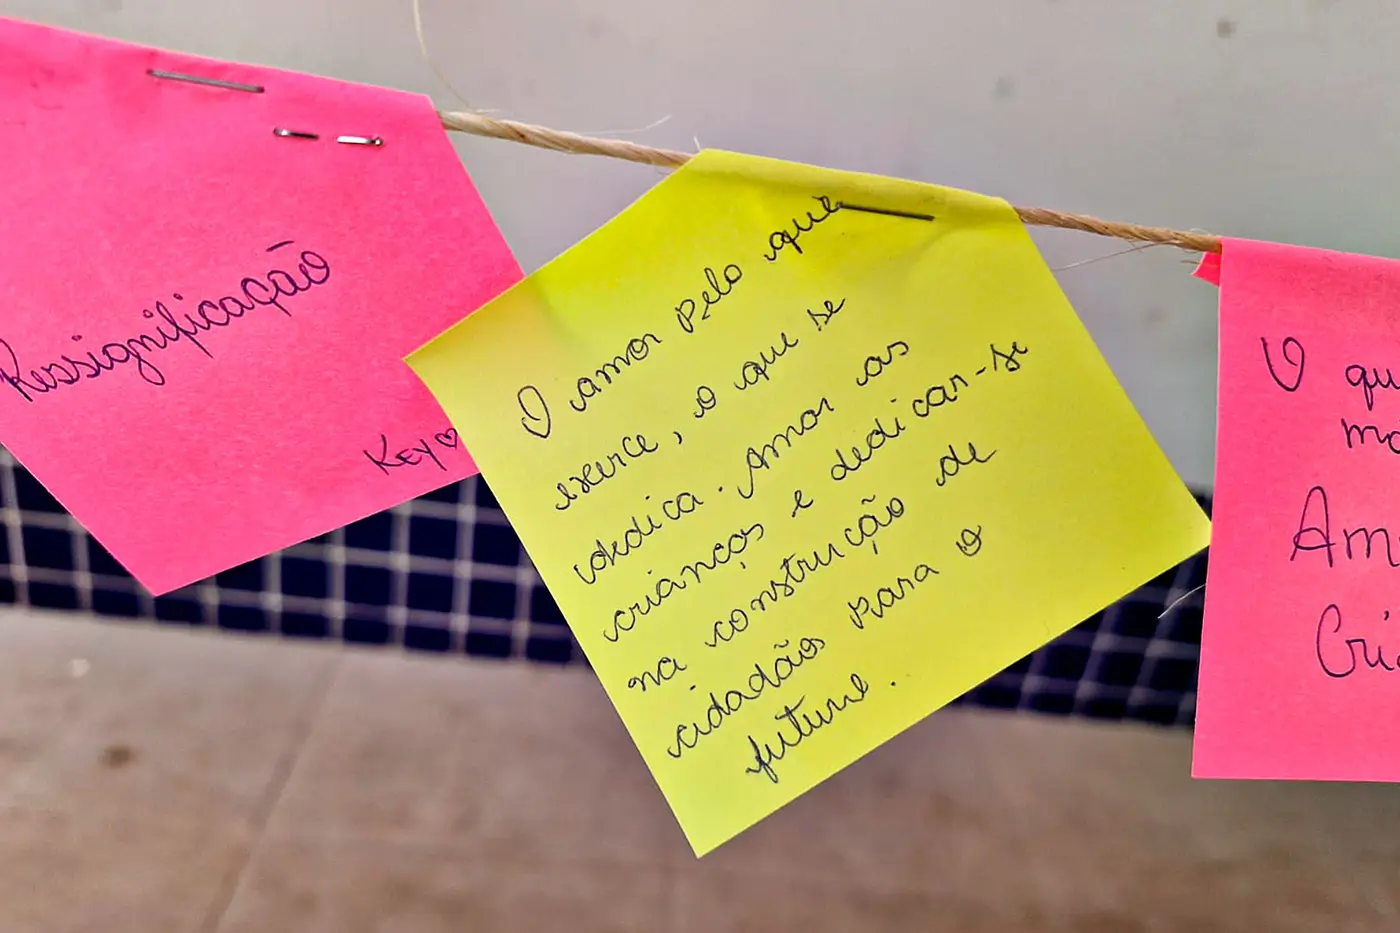 Ressignificação
Key♡
O amor pelo que
exerce, o que se
dedica. Amor as
crianças e dedicar-se
na construção de
cidadãos para o
futuro.
O qu
mo
Am
Cria